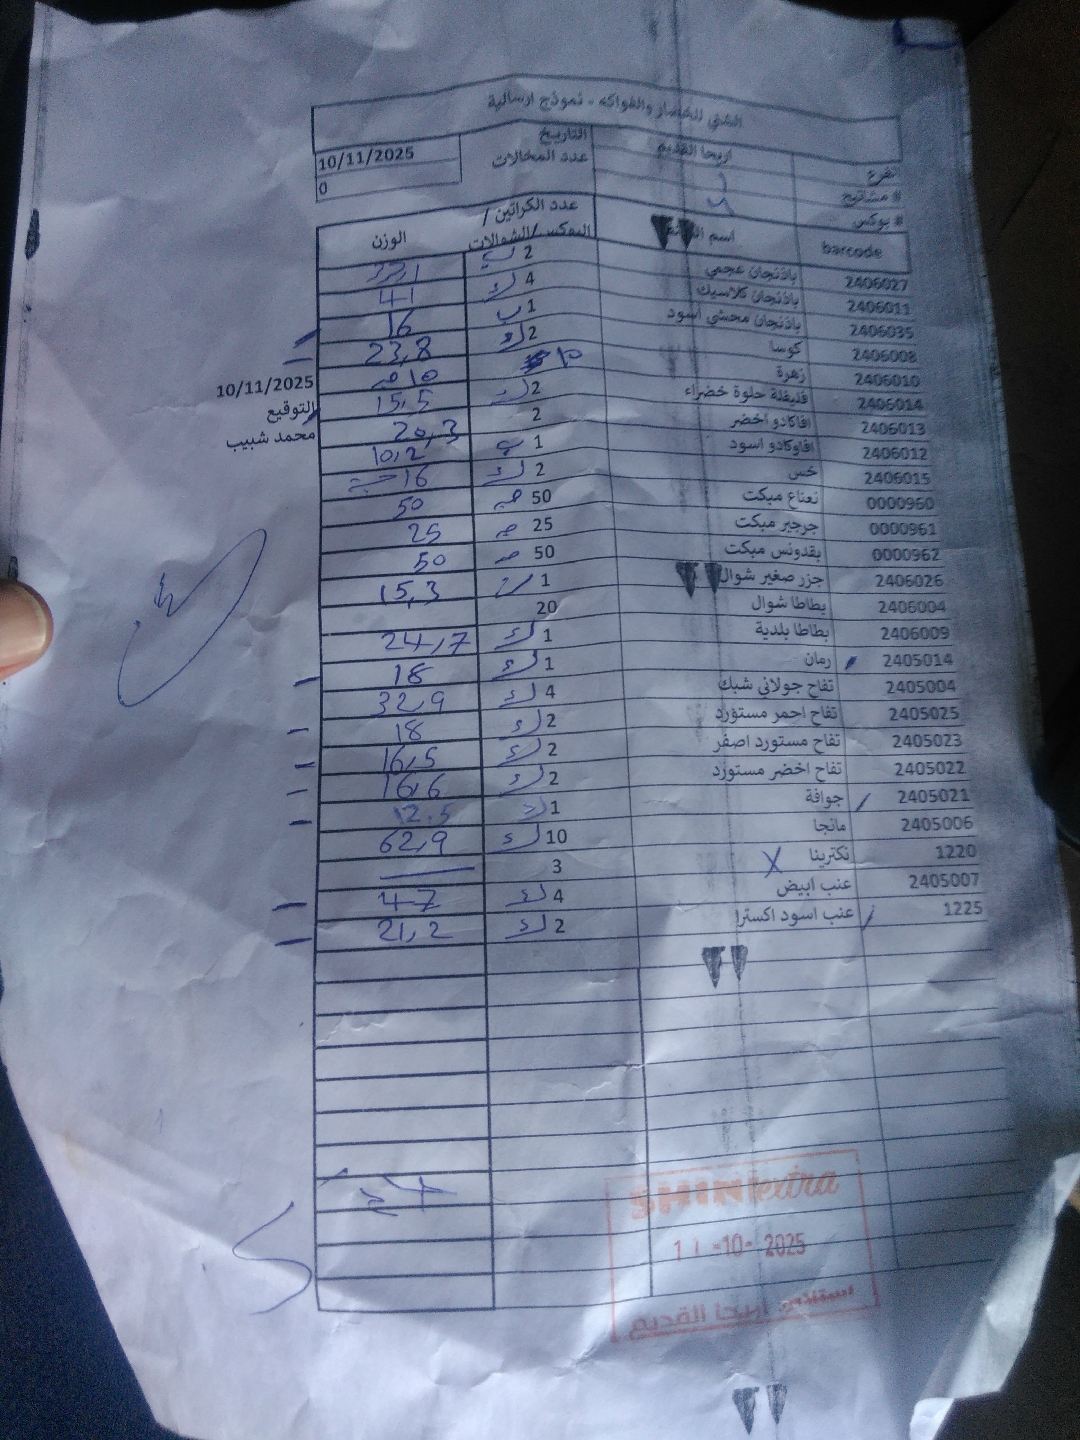 الشني للخضار والفواكه - نموذج ارسالية
الفرع اريحا القديم التاريخ 10/11/2025
# مشاتيح عدد المخالات 0
# بوكس
barcode اسم عدد الكراتين / البوكس/الشوالات الوزن
2406027 باذنجان عجمي 2 ب
2406011 باذنجان كلاسيك 4 ك 41
2406035 باذنجان محشي اسود 1 ب 16
2406008 كوسا 2 ك 23,8
2406010 زهرة 10
2406014 فليفلة حلوة خضراء 2 ك 15,5
2406013 افاكادو اخضر 2 20,3
2406012 افاوكادو اسود 1 10,2
2406015 خس 2 ك 16 حبة
0000960 نعناع مبكت 50 50
0000961 جرجير مبكت 25 25
0000962 بقدونس مبكت 50 50
2406026 جزر صغير شوال 1 15,3
2406004 بطاطا شوال 20
2406009 بطاطا بلدية 1 ك 24,7
2405014 رمان 1 ك 18
2405004 تفاح جولاني شبك 4 ك 32,9
2405025 تفاح احمر مستورد 2 ك 18
2405023 تفاح مستورد اصفر 2 ك 16,5
2405022 تفاح اخضر مستورد 2 ك 16,6
2405021 جوافة 1 ك 12.5
2405006 مانجا 10 ك 62,9
1220 نكترينا X 3
2405007 عنب ابيض 4 ك 47
1225 عنب اسود اكسترا 2 ك 21,2
10/11/2025
التوقيع
محمد شبيب
SHINI extra
11-10-2025
استلام اريحا القديم